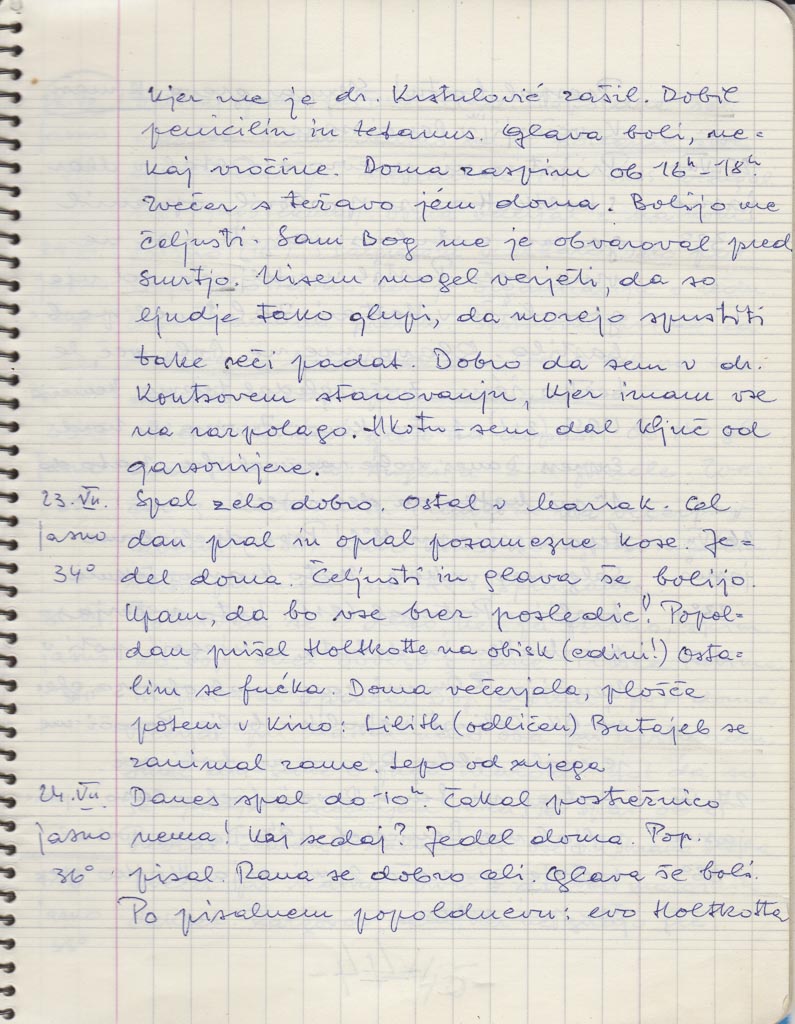 kjer me je dr. Krstulović zašil. Dobil
penicilin in tetanus. Glava boli, ne-
kaj vročine. Doma zaspim ob 16h-18h.
Zvečer s težavo jém doma. Bolijo me
čeljusti. Sam Bog me je obvaroval pred
smrtjo. Nisem mogel verjeti, da so
ljudje tako glupi, da morejo spustiti
take reči padat. Dobro da sem v dr.
Kontsovem stanovanju, kjer imam vse
na razpolago. - sem dal ključ od
garsonijere.
23. VII. Spal zelo dobro. Ostal v. Cel
jasno dan pral in opral posamezne kose. Je-
34° del doma. Čeljusti in glava še bolijo.
Upam, da bo vse brez posledic! Popol-
dan prišel Holtkotte na obisk (edini!) Osta-
lim se fućka. Doma večerjala, plošče
potem v kino: Lilith (odličen) Butajeb se
zanimal zame. Lepo od njega
24. VII. Danes spal do 10h. Čakal postrežnico
jasno nema! Kaj sedaj? Jedel doma. Pop.
36° pisal. Rana se dobro celi. Glava še boli.
Po pisalnem popoldnevu: evo Holtkotta